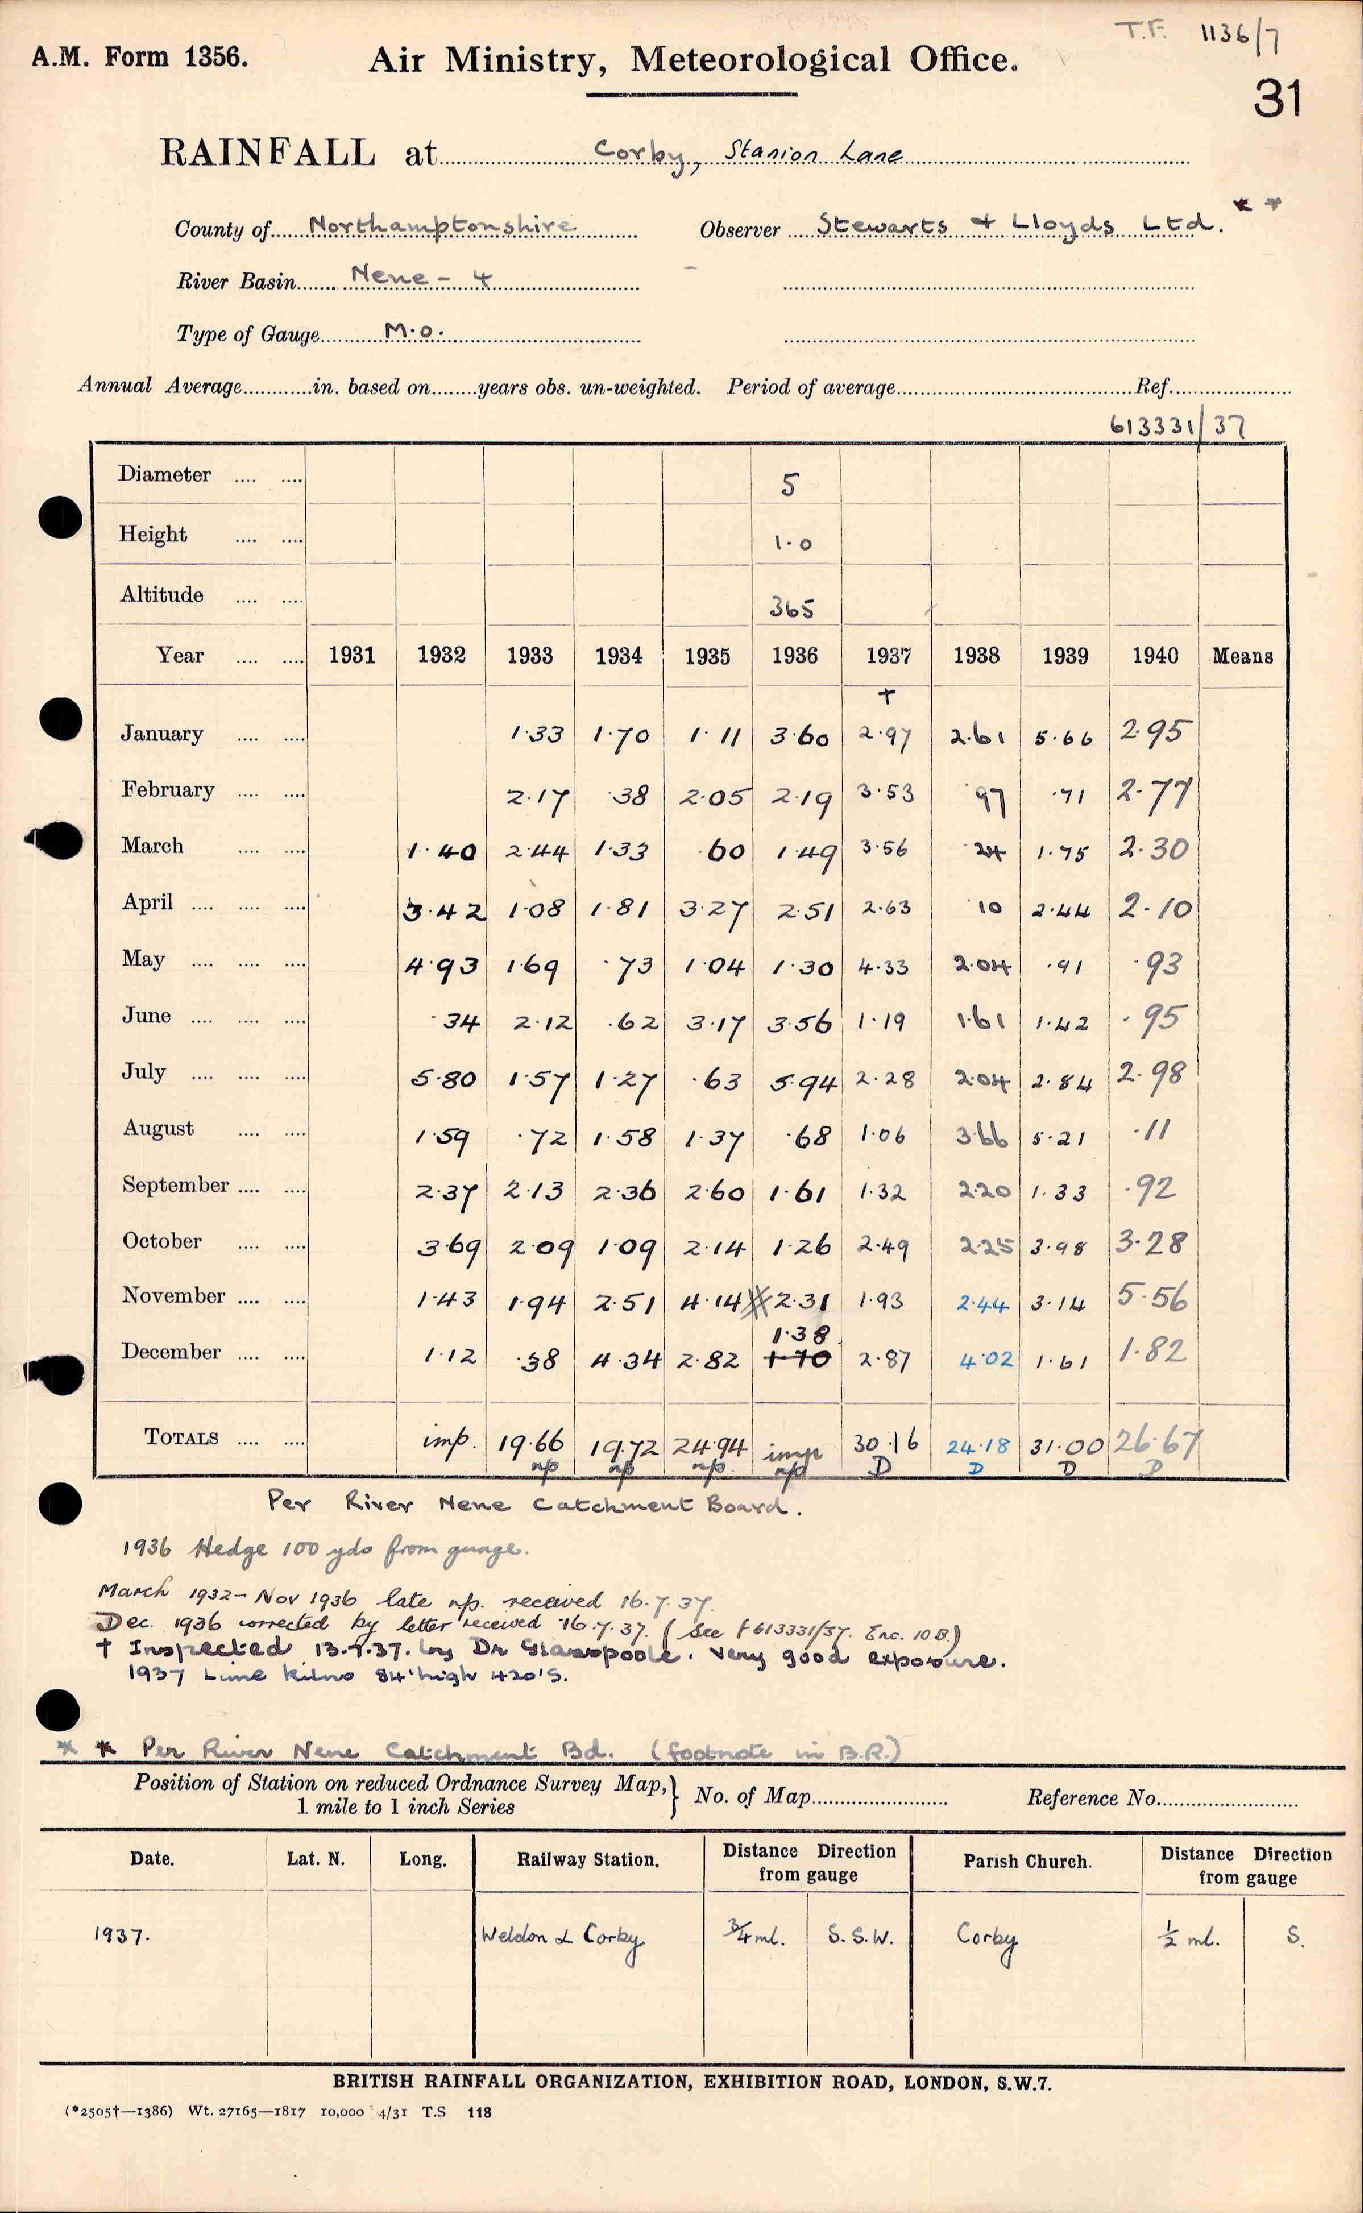 T.F. 1136/7
A.M. Form 1356. Air Ministry, Meteorological Office.
31
RAINFALL at Corby, Stanion Lane
County of Northamptonshire Observer Stewarts & Lloyds Ltd. * *
River Basin Nene - 4
Type of Gauge M.O.
Annual Average............in. based on........years obs. un-weighted. Period of average............Ref............
613331/37
Diameter .... .... 5
Height .... .... 1.0
Altitude .... .... 365
Year .... .... 1931 1932 1933 1934 1935 1936 1937 1938 1939 1940 Means
†
January .... .... 1.33 1.70 1.11 3.60 2.97 2.61 5.66 2.95
February .... .... 2.17 .38 2.05 2.19 3.53 .97 .71 2.77
March .... .... 1.40 2.44 1.33 .60 1.49 3.56 .24 1.75 2.30
April .... .... .... 3.42 1.08 1.81 3.27 2.51 2.63 .10 2.44 2.10
May .... .... .... 4.93 1.69 .73 1.04 1.30 4.33 2.04 .91 .93
June .... .... .... .34 2.12 .62 3.17 3.56 1.19 1.61 1.42 .95
July .... .... .... 5.80 1.57 1.27 .63 5.94 2.28 2.04 2.84 2.98
August .... .... 1.59 .72 1.58 1.37 .68 1.06 3.66 5.21 .11
September .... .... 2.37 2.13 2.36 2.60 1.61 1.32 2.20 1.33 .92
October .... .... 3.69 2.09 1.09 2.14 1.26 2.49 2.25 3.98 3.28
November .... .... 1.43 1.94 2.51 4.14 2.31 1.93 2.44 3.14 5.56
1.38
December .... .... 1.12 .38 4.34 2.82 1.70 2.87 4.02 1.61 1.82
TOTALS .... .... imp. 19.66 19.72 24.94 imp 30.16 24.18 31.00 26.67
np np np. np D D D D
Per River Nene Catchment Board.
1936 Hedge 100 yds from guage.
March 1932 - Nov 1936 late np. received 16.7.37.
Dec. 1936 corrected by letter received 16.7.37. (See f 613331/37. Enc. 10B)
† Inspected 13.7.37. by Dr Glasspoole. Very good exposure.
1937 Lime kilns 84' high 420' S.
* * Per River Nene Catchment Bd. (footnote in B.R.)
Position of Station on reduced Ordnance Survey Map, } No. of Map............ Reference No............
1 mile to 1 inch Series
Date. Lat. N. Long. Railway Station. Distance Direction from gauge Parish Church. Distance Direction from gauge
1937. Weldon & Corby 3/4 ml. S.S.W. Corby 1/2 ml. S.
BRITISH RAINFALL ORGANIZATION, EXHIBITION ROAD, LONDON, S.W.7.
(*2505†—1386) Wt. 27165—1817 10,000 4/31 T.S 118